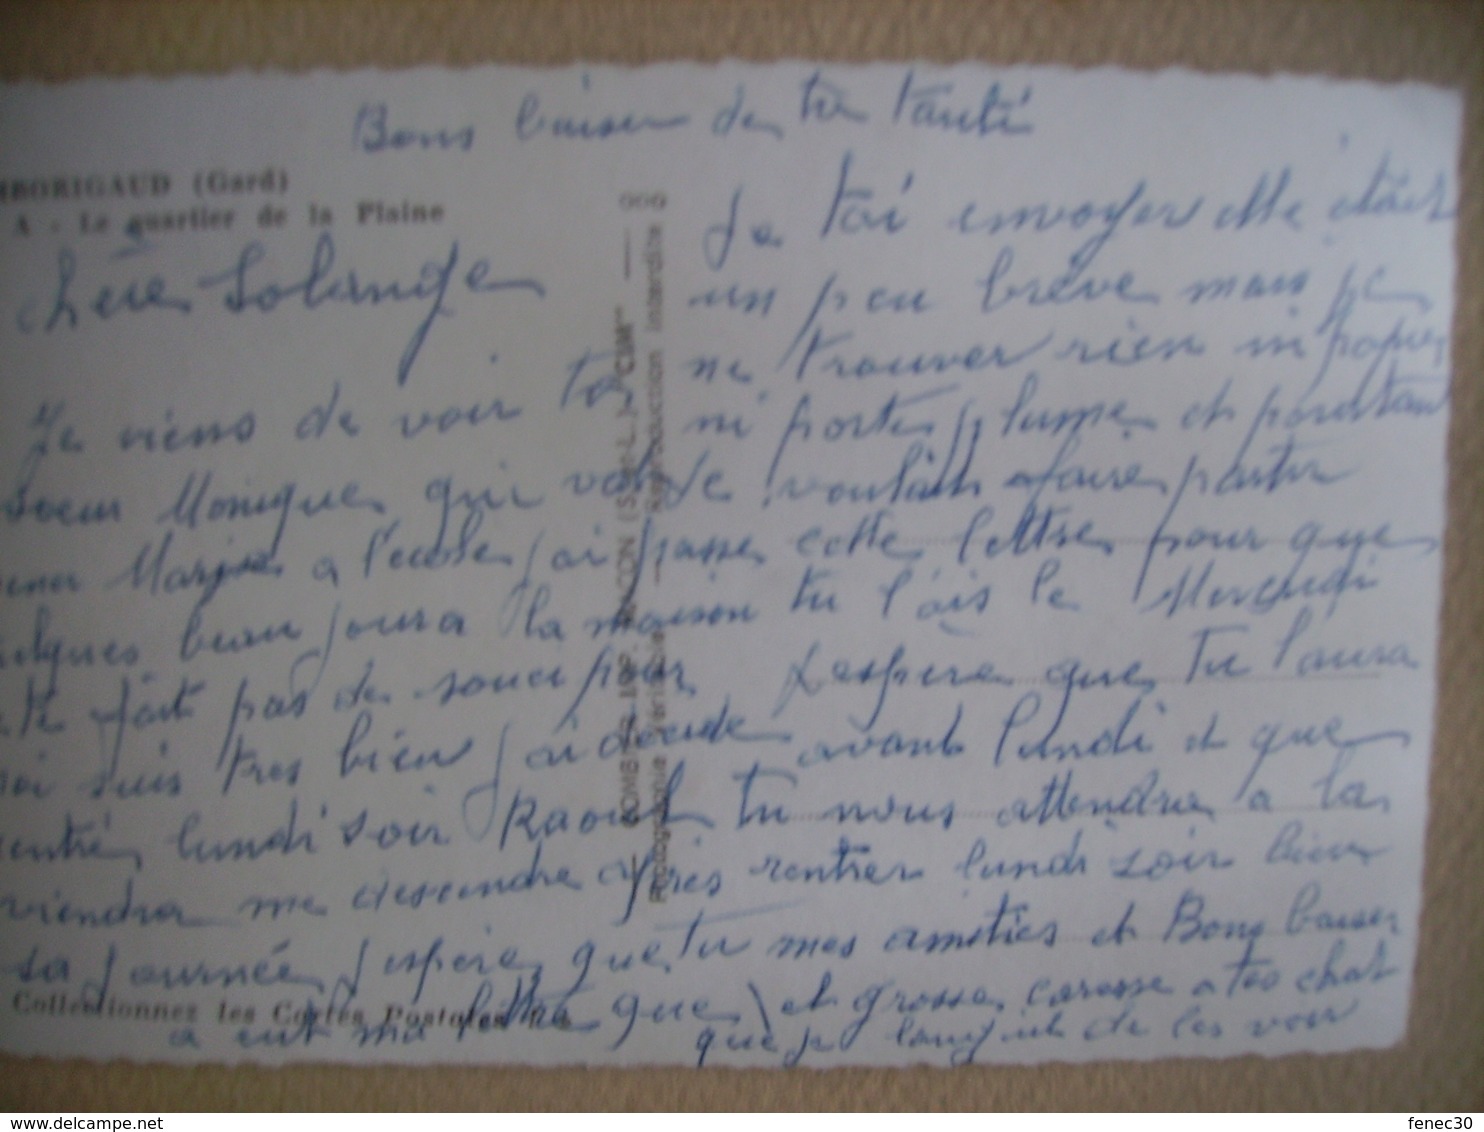 Bons baiser de ta tanti
MBORIGAUD (Gard)
A - Le quartier de la Plaine
chère Solange
Je viens de voir ta
soeur Monique qui va
mener a l'école j'ai passé
quelques beau jours a la maison
te fait pas de souci pour
moi suis tres bien j'ai décidé
rentré lundi soir Raoul
viendra me descendre après
sa journée j'espère que tu
a eut ma lettre que
Collectionnez les Cartes Postales
000
COMBIER IMP. MACON (S.-et-L.) "CIM"
Photographie Véritable — Reproduction interdite
Je t'ai envoyer elle était
un peu brève mais je
ne trouver rien ni papier
ni porte plume et pourtant
je voulait faire partir
cette lettre pour que
tu l'ais le Mercredi
J'espère que tu l'aura
avant lundi et que
tu nous attendra a la
rentrer lundi soir bien
mes amitiés et Bons baiser
et grosse caresse a tes chat
que je languit de les voir
fenec30